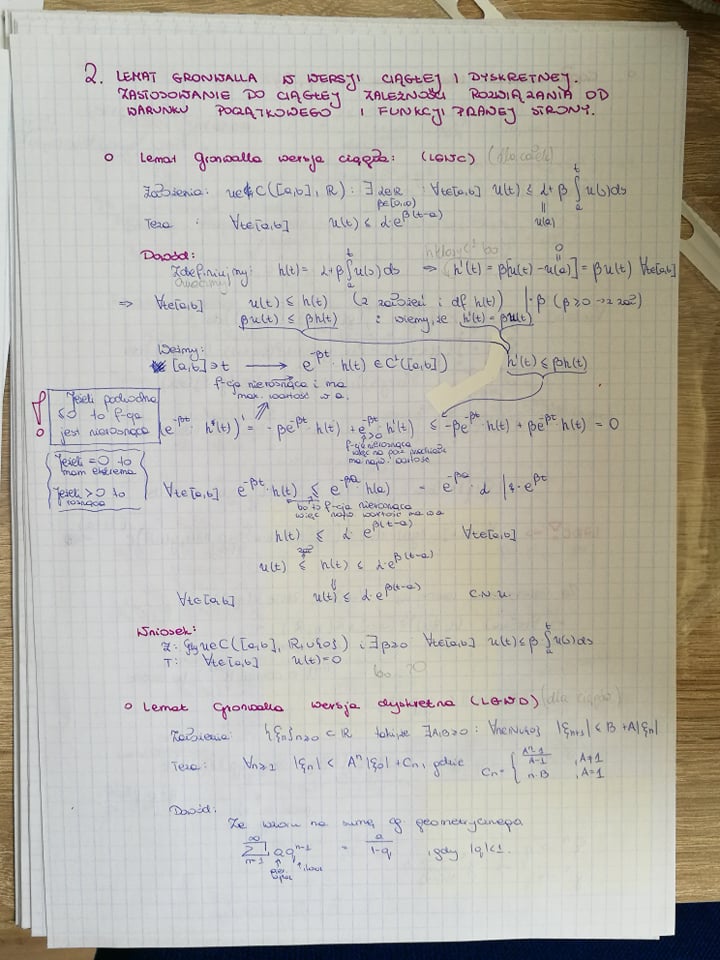 2. LEMAT GRONWALLA W WERSJI CIĄGŁEJ I DYSKRETNEJ.
ZASTOSOWANIE DO CIĄGŁEJ ZALEŻNOŚCI ROZWIĄZANIA OD
WARUNKU POCZĄTKOWEGO I FUNKCJI PRAWEJ STRONY.
○ Lemat Gronwalla wersja ciągła: (LGWC) (dla całek)
Założenia: u∈C([a,b], ℝ): ∃ α∈ℝ β∈[0,∞) : ∀t∈[a,b] u(t) ≤ α + β ∫ₐᵗ u(s)ds
Teza : ∀t∈[a,b] u(t) ≤ α·e^{β(t-a)}
Dowód:
Zdefiniujmy: h(t) = α + β ∫ₐᵗ u(s)ds ⇒ h'(t) = β[u(t) - u(a)] = βu(t) ∀t∈[a,b]
⇒ ∀t∈[a,b] u(t) ≤ h(t) (z założeń i df h(t)) |·β (β≥0 → z zał)
βu(t) ≤ βh(t) i wiemy, że h'(t) = βu(t)
Weźmy:
[a,b]∋t → e^{-βt}·h(t) ∈ C¹([a,b]) h'(t) ≤ βh(t)
f-cja nierosnąca i ma
max. wartość w a.
Jeżeli pochodna
≤0 to f-cja
jest nierosnąca
(e^{-βt}·h(t))' = -βe^{-βt}·h(t) + e^{-βt}·h'(t) ≤ -βe^{-βt}·h(t) + βe^{-βt}·h(t) = 0
Jeżeli =0 to
mam ekstrema
Jeżeli >0 to
rosnąca
∀t∈[a,b] e^{-βt}·h(t) ≤ e^{-βa}·h(a) = e^{-βa}·α |·e^{βt}
bo to f-cja nierosnąca
więc najw wartość ma w a
h(t) ≤ α·e^{β(t-a)} ∀t∈[a,b]
u(t) ≤ h(t) ≤ α·e^{β(t-a)}
∀t∈[a,b] u(t) ≤ α·e^{β(t-a)} c.n.u.
Wniosek:
Z: gdy u∈C([a,b], ℝ₊∪{0}) i ∃β≥0 ∀t∈[a,b] u(t) ≤ β ∫ₐᵗ u(s)ds
T: ∀t∈[a,b] u(t)=0
○ Lemat Gronwalla wersja dyskretna (LGWD) (dla ciągów)
Założenia: {ξₙ}n≥0 ⊂ ℝ takie, że ∃A,B≥0 : ∀n∈ℕ∪{0} |ξₙ₊₁| ≤ B + A|ξₙ|
Teza: ∀n≥1 |ξₙ| ≤ Aⁿ|ξ₀| + Cₙ, gdzie Cₙ = { (Aⁿ-1)/(A-1) , A≠1
n·B , A=1
Dowód:
Ze wzoru na sumę cg geometrycznego
∑_{n=1}^{∞} aq^{n-1} = a/(1-q) , gdy |q|<1.